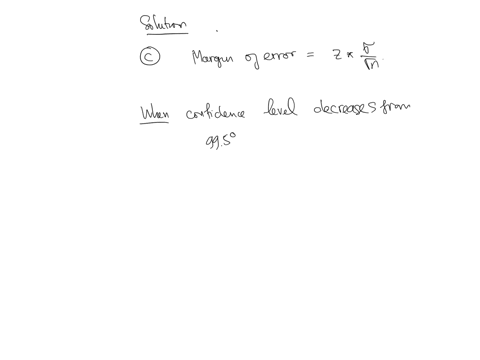 Solution
(c) Margin of error = z * σ/√n
When confidence level decreases from
99.5°